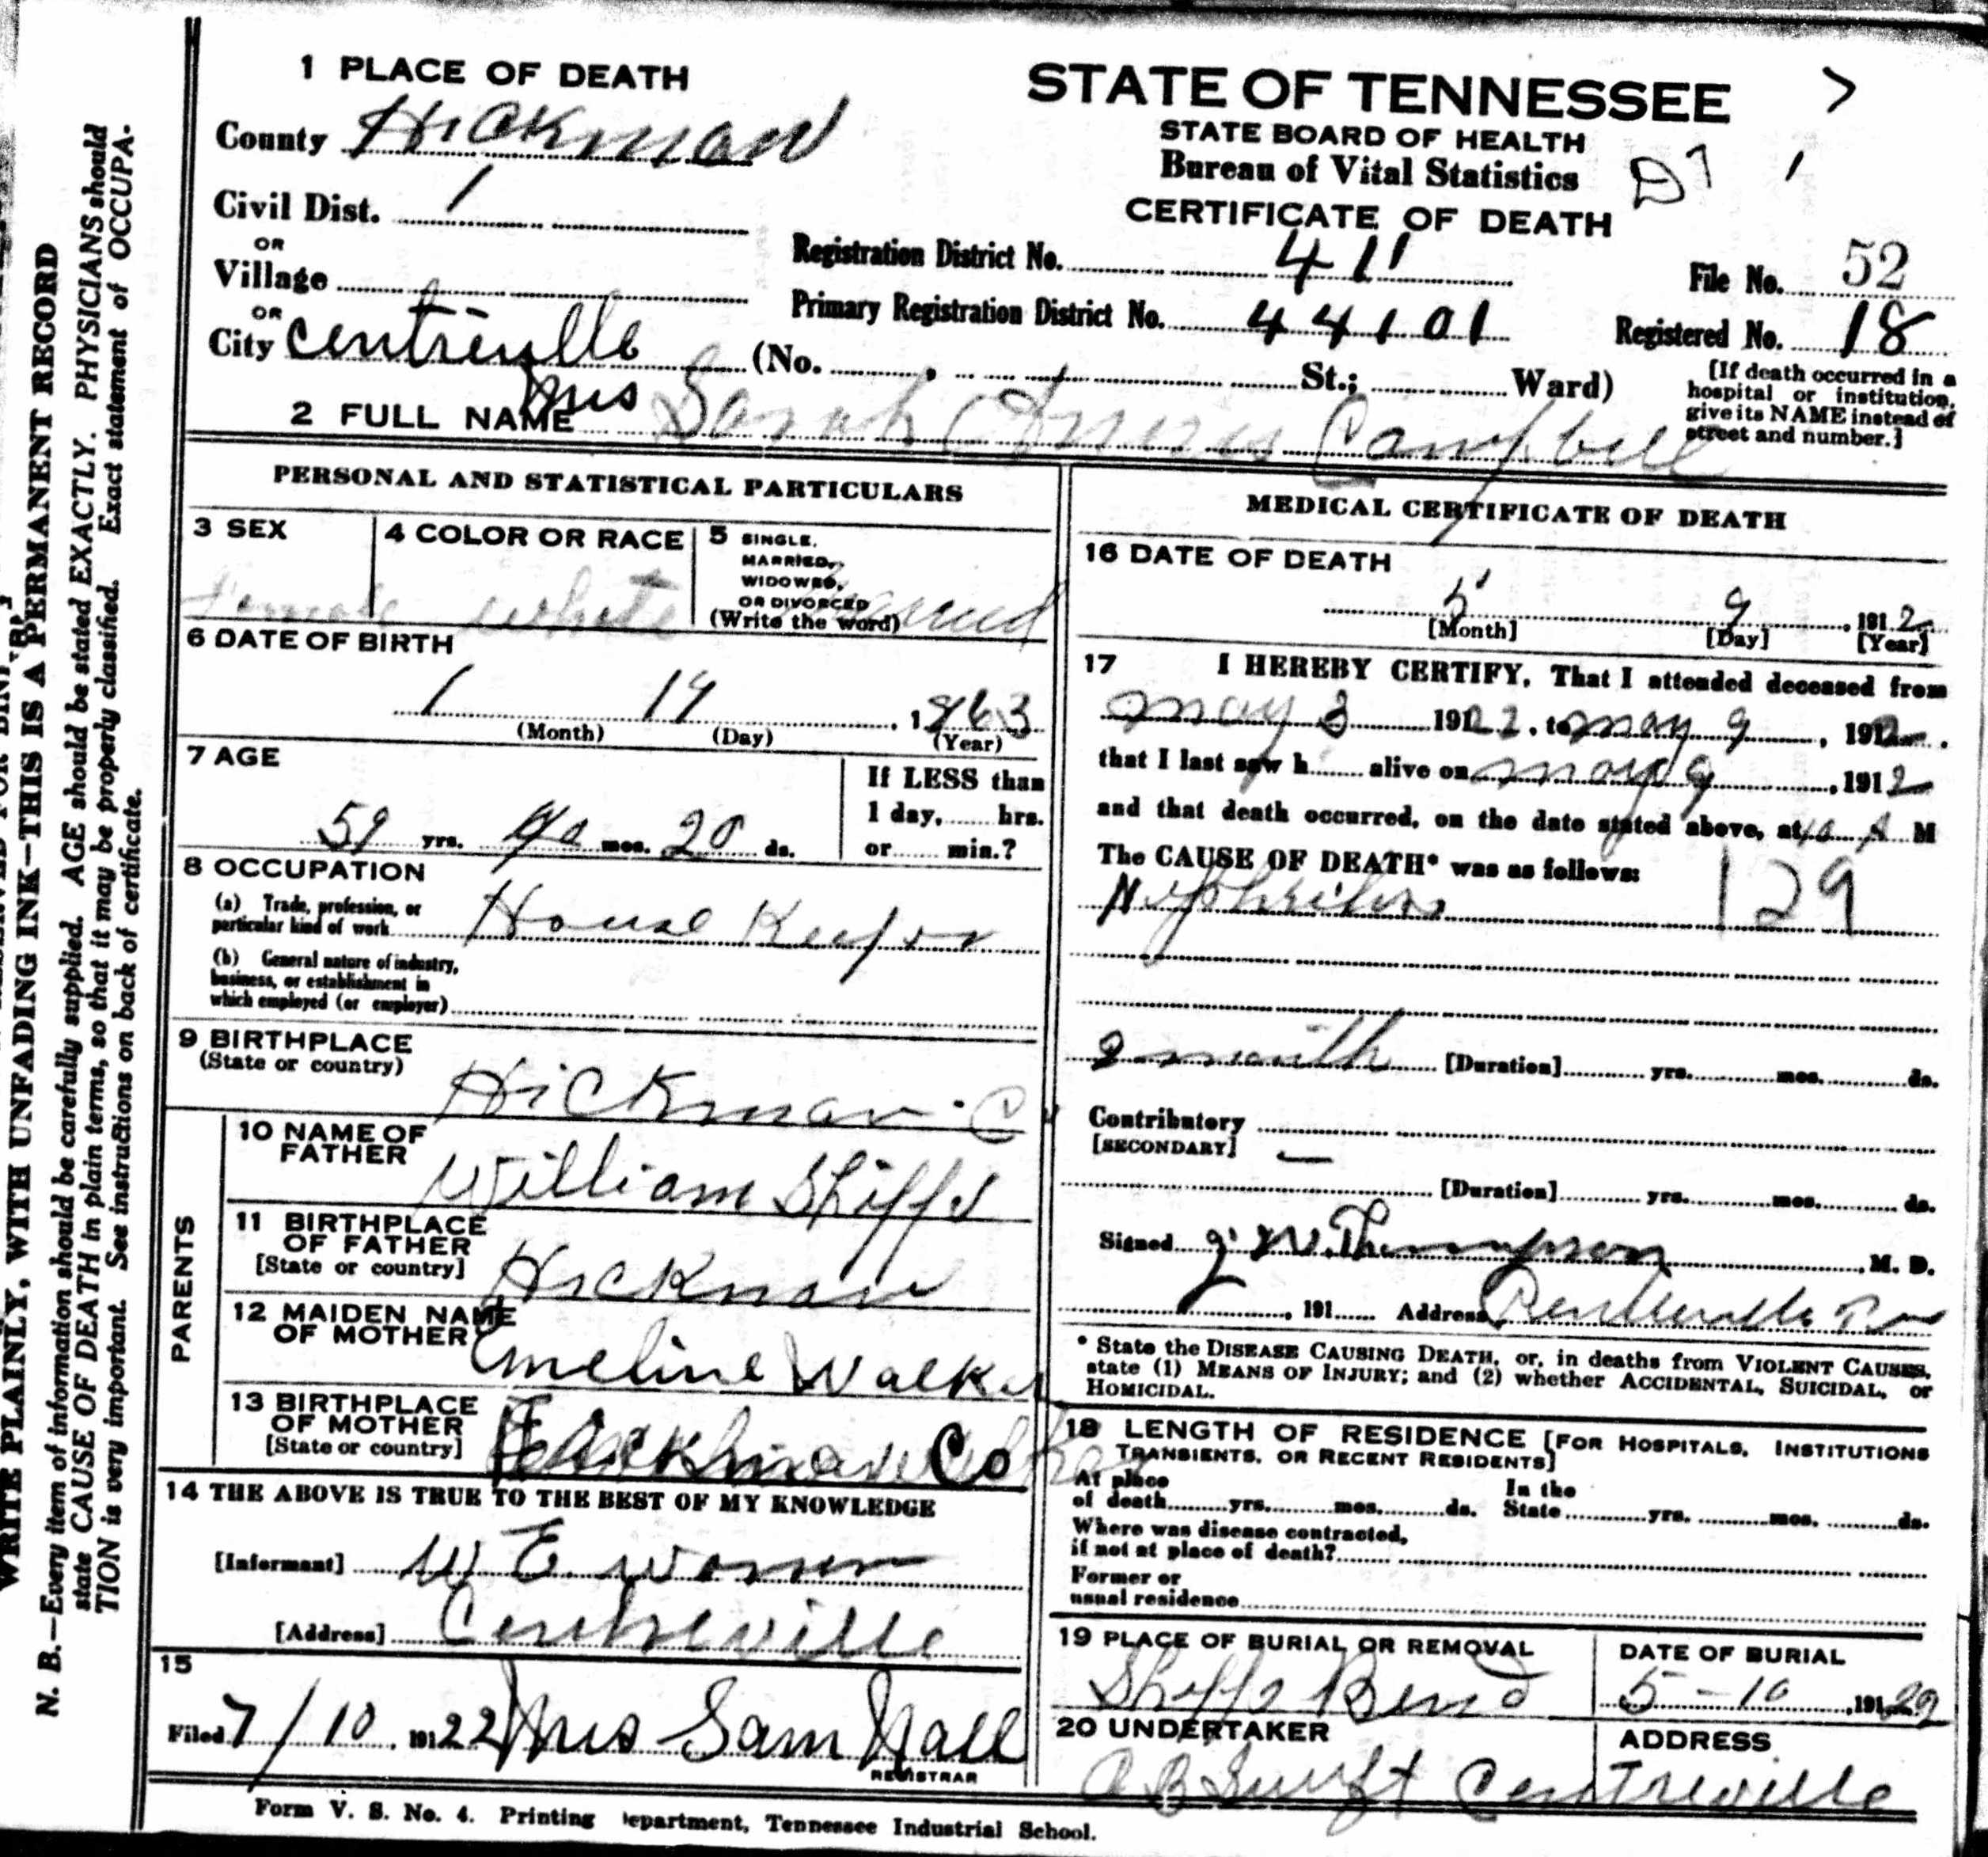 1 PLACE OF DEATH
County Hickman
Civil Dist. 1
OR
Village
OR
City Centreville (No. St.; Ward)
STATE OF TENNESSEE
STATE BOARD OF HEALTH
Bureau of Vital Statistics
CERTIFICATE OF DEATH
Registration District No. 411
Primary Registration District No. 44101
File No. 52
Registered No. 18
[If death occurred in a
hospital or institution,
give its NAME instead of
street and number.]
2 FULL NAME Mrs Sarah Campbell
PERSONAL AND STATISTICAL PARTICULARS
3 SEX
Female
4 COLOR OR RACE
white
5 SINGLE,
MARRIED,
WIDOWED,
OR DIVORCED
(Write the word)
6 DATE OF BIRTH
1 19, 1863
(Month) (Day) (Year)
7 AGE
59 yrs. mos. 20 ds.
If LESS than
1 day, hrs.
or min.?
8 OCCUPATION
(a) Trade, profession, or
particular kind of work House Keeper
(b) General nature of industry,
business, or establishment in
which employed (or employer)
9 BIRTHPLACE
(State or country)
Hickman Co
PARENTS
10 NAME OF
FATHER
William Shipp
11 BIRTHPLACE
OF FATHER
[State or country]
Hickman
12 MAIDEN NAME
OF MOTHER
Emeline Walker
13 BIRTHPLACE
OF MOTHER
[State or country]
Hickman Co
14 THE ABOVE IS TRUE TO THE BEST OF MY KNOWLEDGE
[Informant] W E
[Address] Centreville
15
Filed 7/10, 19122 Mrs Sam Hall
REGISTRAR
Form V. S. No. 4. Printing Department, Tennessee Industrial School.
MEDICAL CERTIFICATE OF DEATH
16 DATE OF DEATH
5 9, 1912
[Month] [Day] [Year]
17 I HEREBY CERTIFY, That I attended deceased from
may 3 1912, to may 9, 1912.
that I last saw h alive on may 9, 1912
and that death occurred, on the date stated above, at 10 A M
The CAUSE OF DEATH* was as follows:
Nephritis 129
2 month [Duration] yrs. mos. ds.
Contributory
[SECONDARY] —
[Duration] yrs. mos. ds.
Signed J W. Thompson, M. D.
, 191 Address Centreville
* State the DISEASE CAUSING DEATH, or, in deaths from VIOLENT CAUSES,
state (1) MEANS OF INJURY; and (2) whether ACCIDENTAL, SUICIDAL, or
HOMICIDAL.
18 LENGTH OF RESIDENCE [FOR HOSPITALS, INSTITUTIONS
TRANSIENTS, OR RECENT RESIDENTS]
At place
of death yrs. mos. ds. In the
State yrs. mos. ds.
Where was disease contracted,
if not at place of death?
Former or
usual residence
19 PLACE OF BURIAL OR REMOVAL
Shipps Bend
DATE OF BURIAL
5-10, 191 22
20 UNDERTAKER
Swift
ADDRESS
Centreville
WRITE PLAINLY, WITH UNFADING INK—THIS IS A PERMANENT RECORD
N. B.—Every item of information should be carefully supplied. AGE should be stated EXACTLY. PHYSICIANS should
state CAUSE OF DEATH in plain terms, so that it may be properly classified. Exact statement of OCCUPA-
TION is very important. See instructions on back of certificate.